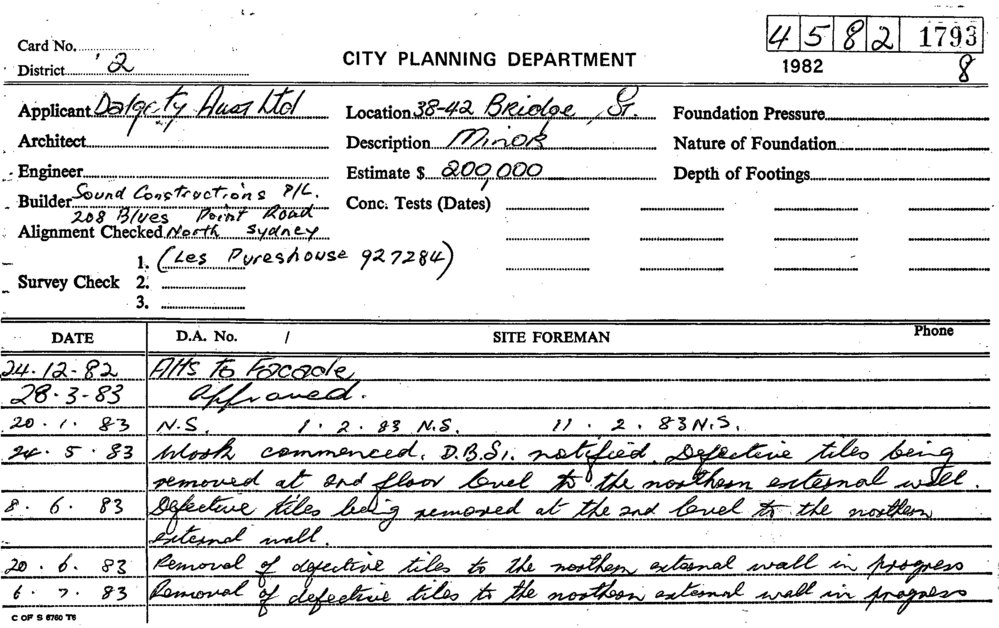 4582 1793
Card No.
CITY PLANNING DEPARTMENT
1982 8
District 2
Applicant Dalgety Aust Ltd Location 38-42 Bridge St. Foundation Pressure
Architect Description Minor Nature of Foundation
Engineer Estimate $ 200,000 Depth of Footings
Builder Sound Constructions P/L. Conc. Tests (Dates)
208 Blues Point Road
Alignment Checked North Sydney
1. (Les Pureshouse 927284)
Survey Check 2.
3.
DATE D.A. No. / SITE FOREMAN Phone
24.12-82 Alts to Facade
28.3-83 Approved.
20.1.83 N.S. 1.2.83 N.S. 11.2.83 N.S.
24.5.83 Work commenced. D.B.S. notified. Defective tiles being
removed at 2nd floor level to the northern external wall.
8.6.83 Defective tiles being removed at the 2nd level to the northern
external wall.
20.6.83 Removal of defective tiles to the northern external wall in progress
6.7.83 Removal of defective tiles to the northern external wall in progress
C OF S 6760 T6